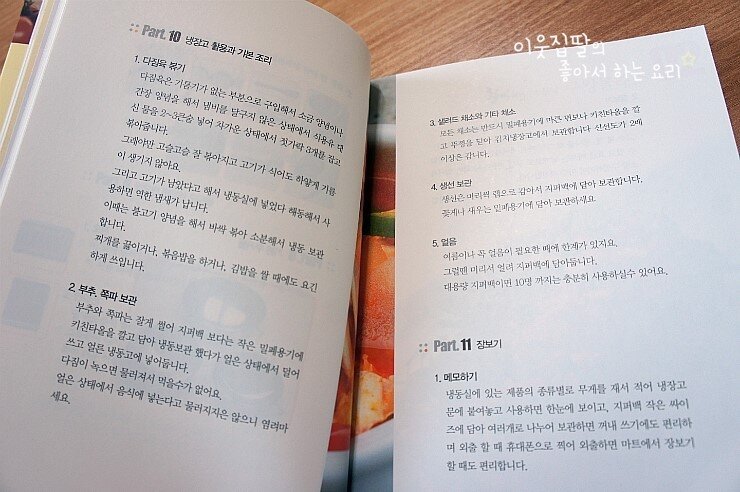 Part. 10 냉장고 활용과 기본 조리
1. 다짐육 볶기
다짐육은 기름기가 없는 부분으로 구입해서 소금 양념이나
간장 양념을 해서 냄비를 달구지 않은 상태에서 식용유 대
신 물을 2~3큰술 넣어 차가운 상태에서 젓가락 3개를 잡고
볶아줍니다.
그래야만 고슬고슬 잘 볶아지고 고기가 식어도 하얗게 기름
이 생기지 않아요.
그리고 고기가 남았다고 해서 냉동실에 넣었다 해동해서 사
용하면 약한 냄새가 납니다.
이때는 불고기 양념을 해서 바싹 볶아 소분해서 냉동 보관
합니다.
찌개를 끓이거나, 볶음밥을 하거나, 김밥을 쌀 때에도 요긴
하게 쓰입니다.
2. 부추, 쪽파 보관
부추와 쪽파는 잘게 썰어 지퍼백 보다는 작은 밀폐용기에
키친타올을 깔고 담아 냉동보관 했다가 얼은 상태에서 덜어
쓰고 얼른 냉동고에 넣어둡니다.
다짐이 녹으면 물러져서 먹을수가 없어요.
얼은 상태에서 음식에 넣는다고 물러지지은 않으니 염려마
세요.
이웃집딸의
좋아서 하는 요리
3. 샐러드 채소와 기타 채소
모든 채소는 반드시 밀폐용기에 마른 면보나 키친타올을 깔
고 뚜껑을 닫아 김치냉장고에서 보관합니다 신선도가 2배
이상은 갑니다.
4. 생선 보관
생선은 미리씩 랩으로 감아서 지퍼백에 담아 보관합니다.
꽃게나 새우는 밀폐용기에 담아 보관하세요
5. 얼음
여름이나 꼭 얼음이 필요한 때에 한계가 있지요.
그럴땐 미리서 얼려 지퍼백에 담아둡니다.
대용량 지퍼백이면 10명 까지는 충분히 사용하실수 있어요.
Part. 11 장보기
1. 메모하기
냉동실에 있는 제품의 종류별로 무게를 재서 적어 냉장고
문에 붙여놓고 사용하면 한눈에 보이고, 지퍼백 작은 싸이
즈에 담아 여러개로 나누어 보관하면 꺼내 쓰기에도 편리하
며 외출 할 때 휴대폰으로 찍어 외출하면 마트에서 장보기
할 때도 편리합니다.